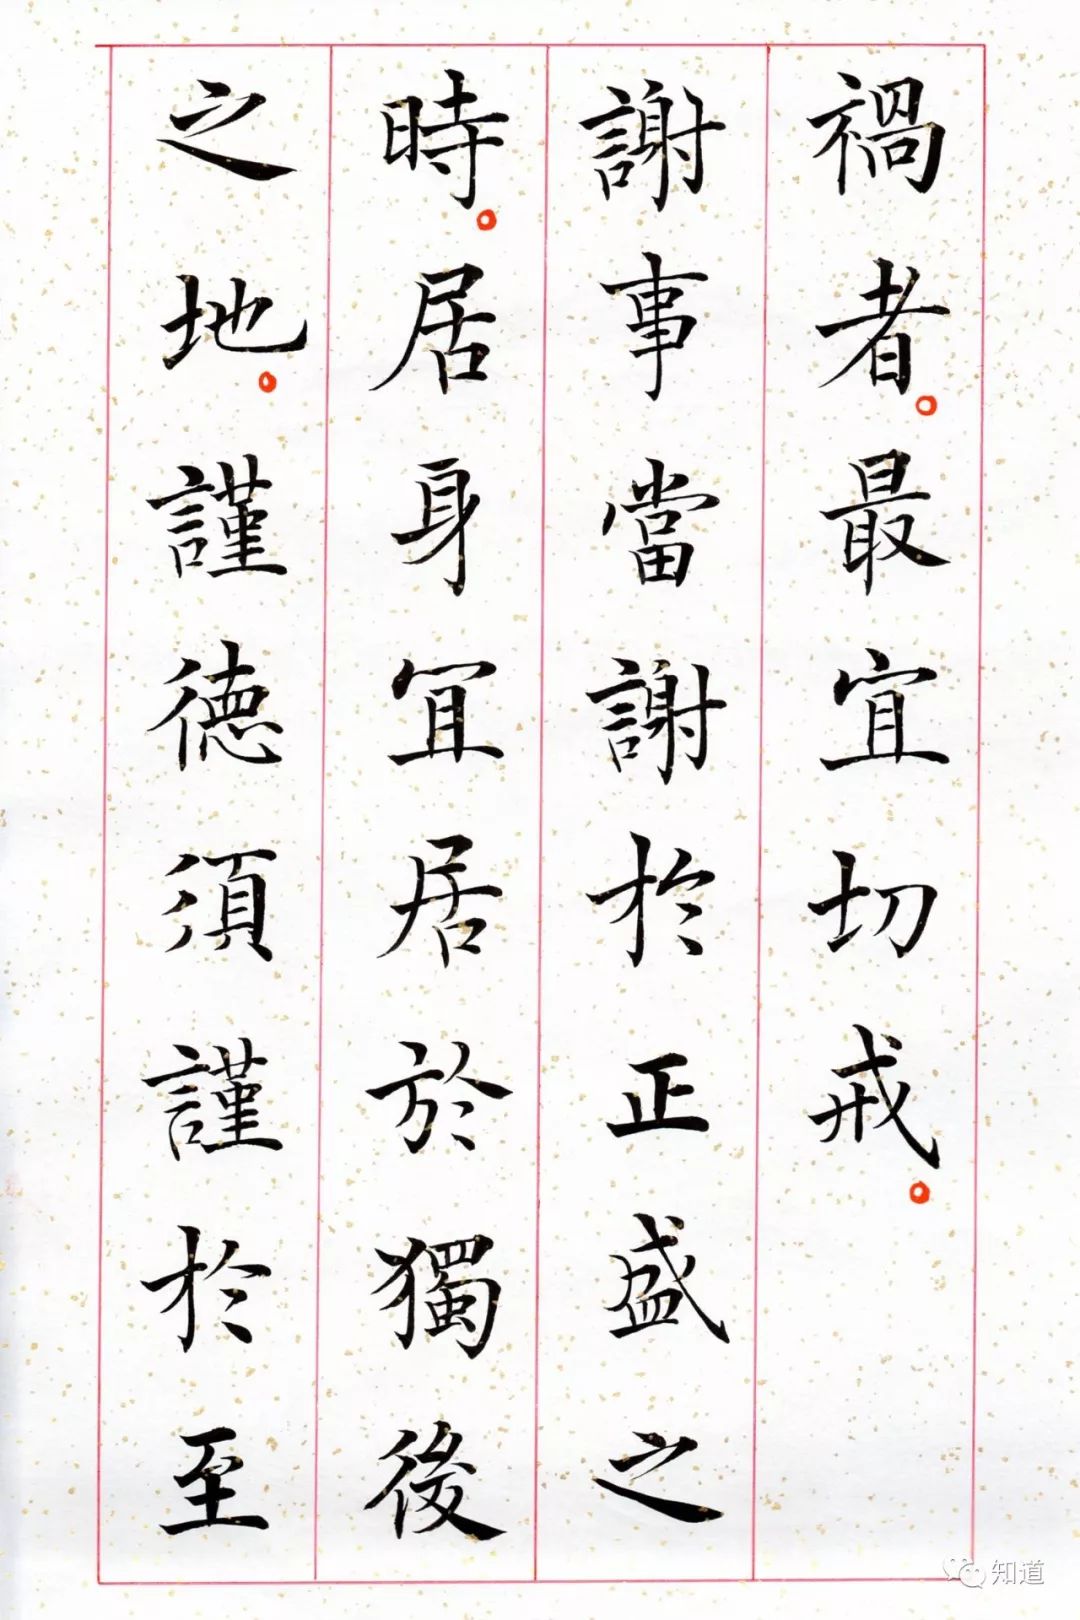 禍者。最宜切戒。
謝事當謝於正盛之
時。居身冝居於獨後
之地。謹德須謹於至
知道